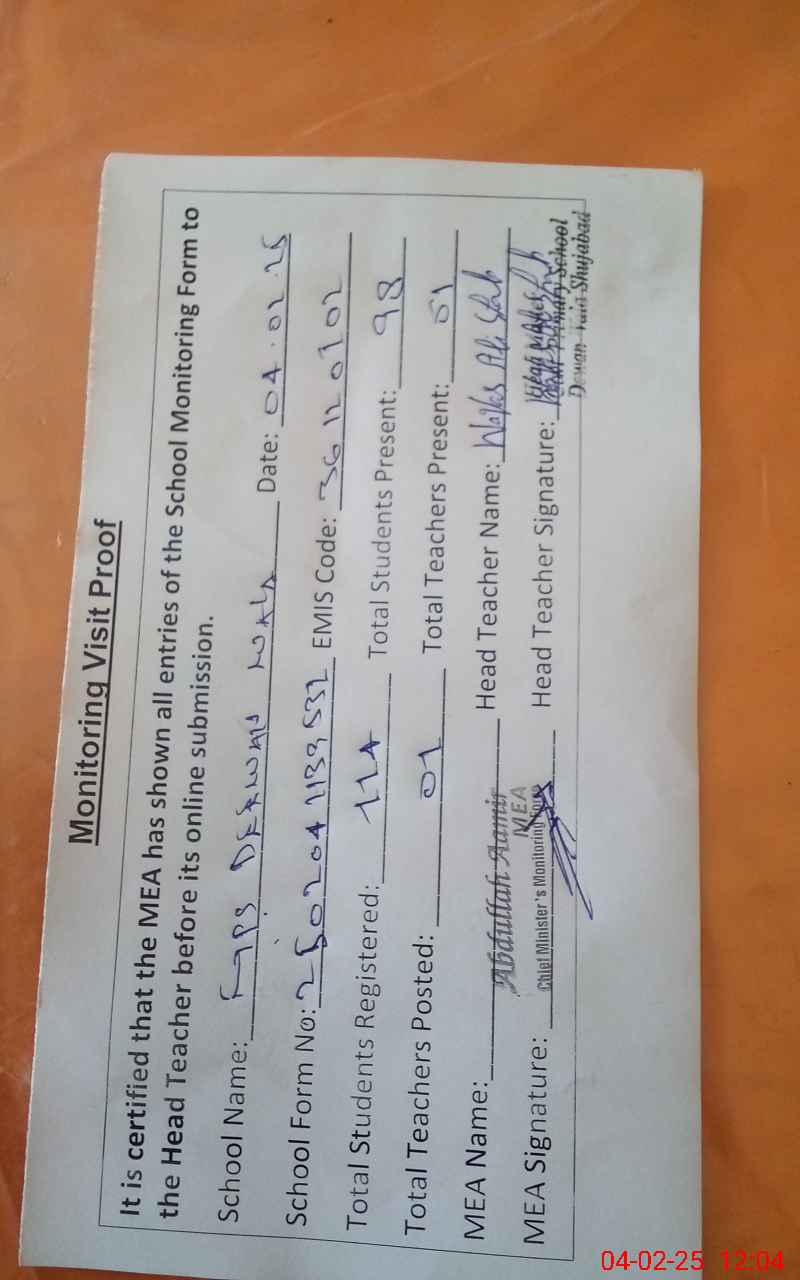 Monitoring Visit Proof
It is certified that the MEA has shown all entries of the School Monitoring Form to
the Head Teacher before its online submission.
School Name: Date: 04.02.25
School Form No: EMIS Code: 36120102
Total Students Registered: 114 Total Students Present: 98
Total Teachers Posted: 01 Total Teachers Present: 01
MEA Name: Abdullah Aamir Head Teacher Name: Ali
MEA
MEA Signature: Chief Minister's Monitoring Force Head Teacher Signature:
Primary School
Shujabad
04-02-25 12:04